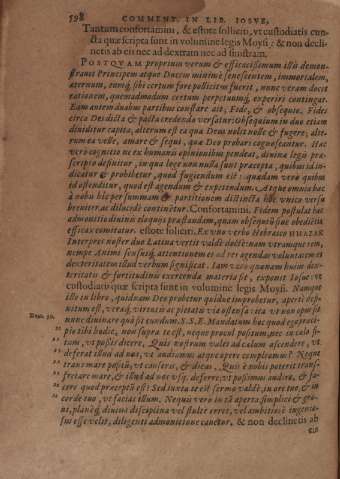 598 COMMENT. IN LIB. IOSVE,
Tantum confortamini, & estote solliciti, vt custodiatis cun-
cta quæ scripta sunt in volumine legis Moysi: & non decli-
netis ab eis nec ad dextram nec ad sinistram.
POSTQVAM proprium verum & efficacissimum illis demon-
strauit Principem atque Ducem minimè senescentem, immortalem,
æternum, eoque sibi certum fore polliciti fuerit, nunc veram docet
rationem, quemadmodum certum perpetuumque experiri contingat.
Eam autem duabus partibus constare ait, Fide, & obsequio. Fides
circa Dei dicta & pacta credenda versatur: Obsequium in duo etiam
diuiditur capita, alterum est ea quæ Deus nolit nolle & fugere, alte-
rum ea velle, amare & sequi, quæ Deo probari cognoscantur. Hæc
verò cognitio ne ex humanis opinionibus pendeat, diuina legis præ-
scripto definitur, in qua lege non nulla sunt præcepta, quibus id in-
dicatur & prohibetur, quod fugiendum est: quædam verò quibus
id ostenditur, quod est agendum & expetendum. Atque omnia hæc
à nobis hic per summam & partitionem distincta hoc vnico versu
breuiter ac dilucidè continetur. Confortamini. Fidem postulat hæc
admonitio diuinis eloquiis præstandam, quam obsequij siue obedientiæ
efficax comitatur. estote soliciti. Ex uno verbo Hebraico
Interpres noster duo Latina vertit valdè docte: nam vtramque rem,
nempe Animi sensusque attentionem et ad res agendas voluntatem et
dexteritatem illud verbum significat. Iam verò quænam huius dex-
teritatis & fortitudinis exercendæ materia sit, exponit Iosue: vt
custodiatis quæ scripta sunt in volumine legis Moysi. Namque
ille in libro, quidnam Deo probetur quidue improbetur, apertè
est, veraque virtutis ac pietatis via ostensa: ita vt non opus sit
nunc diuinare quà sit eundum. S.S.E. Mandatum hoc quod ego præci-
Deut. 30. pio tibi hodie, non supra te est, neque procul positum, nec in cælo si-
tum, vt possis dicere, Quis nostrum valet ad cælum ascendere, vt
deferat illud ad nos, vt audiamus atque opere compleamus? Neque
trans mare positum, vt causeris, & dicas, Quis è nobis poterit trans-
fretare mare, & illud ad nos vsque deferre: vt possimus audire, & fa-
cere quod præceptum est? Sed iuxta te est sermo valdè, in ore tuo, & in
corde tuo, vt facias illum. Nequis vero in tā aperta simplice &
planéque diuini disciplina vel stultè erret, vel ambitiosè ingenio-
sus esse velit, diligenti admonitione cauetur, & non declinetis ab
eis